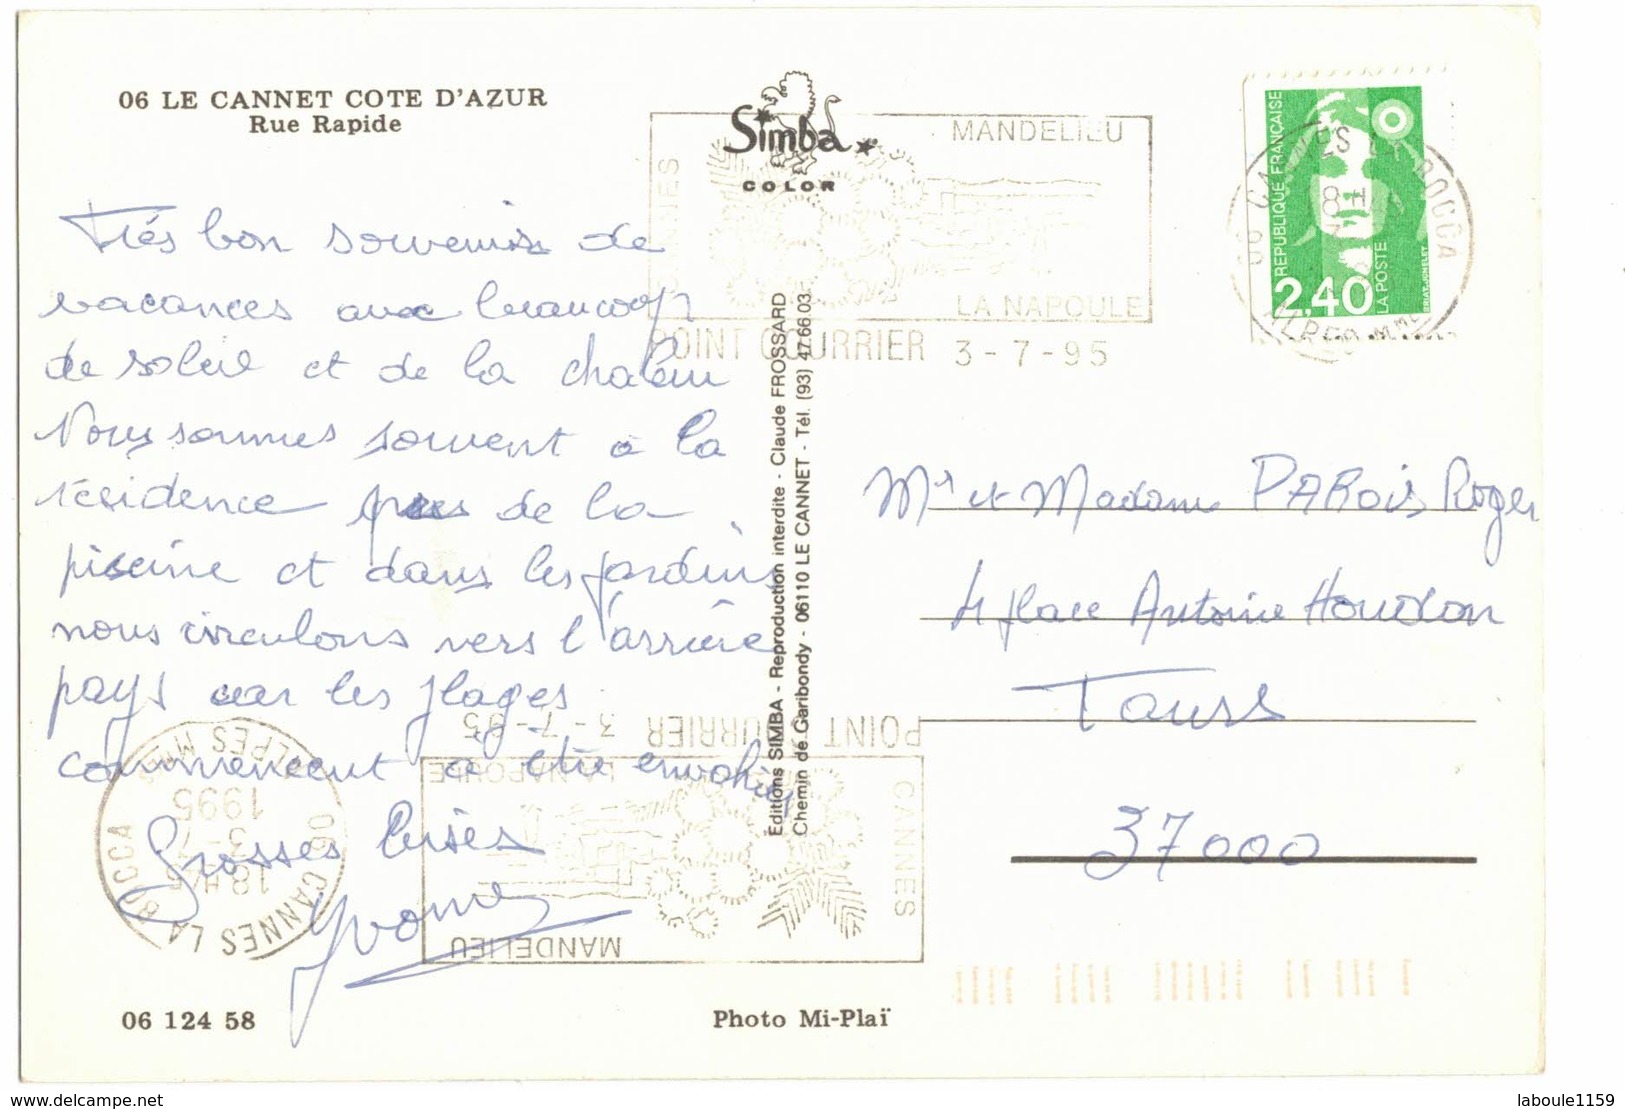 06 LE CANNET COTE D'AZUR
Rue Rapide
Simba
COLOR
MANDELIEU
CANNES
LA NAPOULE
POINT COURRIER 3-7-95
06 CANNES LA BOCCA
18H45
ALPES MMES
REPUBLIQUE FRANÇAISE
2,40
LA POSTE
BRIAT-JUMELET
Très bon souvenir de
vacances avec beaucoup
de soleil et de la chaleur
Nous sommes souvent à la
résidence près de la
piscine et dans les jardins
nous circulons vers l'arrière
pays car les plages
commencent à être envahies
Grosses bises
Yvonne
Editions SIMBA - Reproduction interdite - Claude FROSSARD
Chemin de Garibondy - 06110 LE CANNET - Tél. (93) 47.66.03.
Mr et Madame PAROIS Roger
4 place Antoine Houdon
Tours
37000
POINT COURRIER 3-7-95
CANNES
LA NAPOULE
MANDELIEU
06 CANNES LA BOCCA
18H45
3-7
1995
ALPES MMES
06 124 58
Photo Mi-Plaï
laboule1159